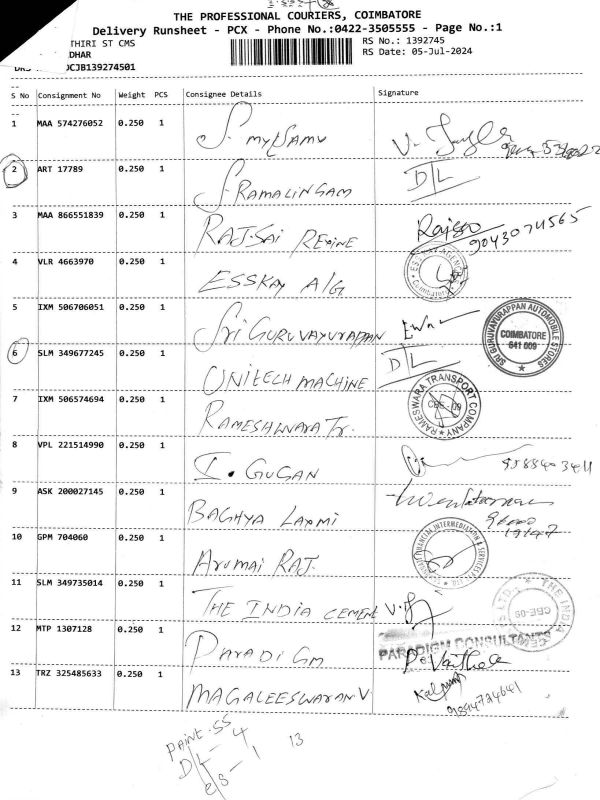 THE PROFESSIONAL COURIERS, COIMBATORE
Delivery Runsheet - PCX - Phone No.:0422-3505555 - Page No.:1
THIRI ST CMS
RS No.: 1392745
DHAR
RS Date: 05-Jul-2024
DCJB139274501
S No Consignment No Weight PCS Consignee Details Signature
1 MAA 574276052 0.250 1
2 ART 17789 0.250 1 S. RAMALINGAM D/L
3 MAA 866551839 0.250 1 RAJ.SAI REXINE 9043074565
4 VLR 4663970 0.250 1 ESSKAY A/G
5 IXM 506706051 0.250 1 SRI GURUVAYURAPPAN
SRI GURUVAYURAPPAN AUTOMOBILE STORES COIMBATORE 641 009
6 SLM 349677245 0.250 1 UNITECH MACHINE D/L
7 IXM 506574694 0.250 1 RAMESHWARA Tr.
RAMESWARA TRANSPORT COMPANY CBE - 09
8 VPL 221514990 0.250 1 I. GUGAN
9 ASK 200027145 0.250 1 BAGHYA LAXMI
10 GPM 704060 0.250 1 ARUMAI RAJ.
11 SLM 349735014 0.250 1 THE INDIA CEMENT
THE INDIA CEMENTS LTD. CBE-09
12 MTP 1307128 0.250 1 PARADIGM
PARADIGM CONSULTANTS
13 TRZ 325485633 0.250 1 MAGALEESWARAN.V
9894724641
D/L - 4
13